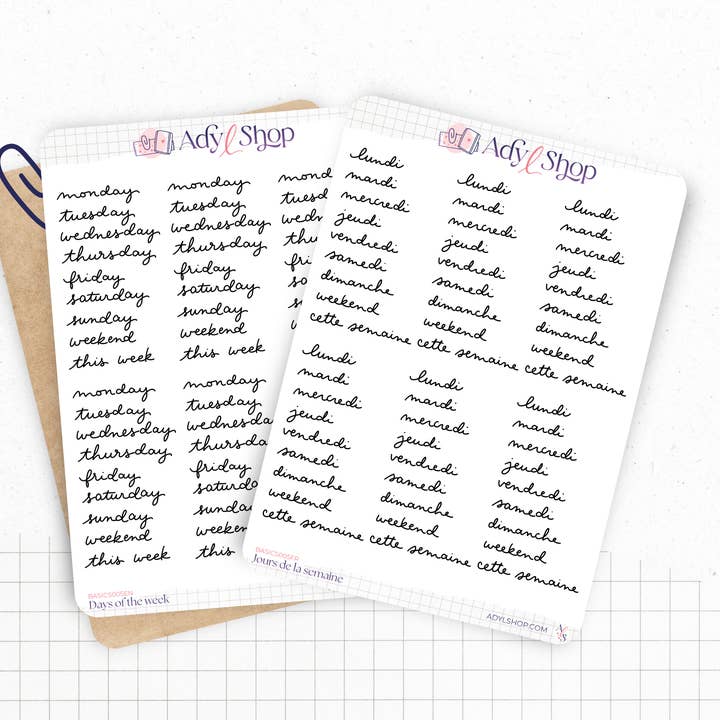 Adyl Shop
monday
tuesday
wednesday
thursday
friday
saturday
sunday
weekend
this week
monday
tuesday
wednesday
thursday
friday
saturday
sunday
weekend
this week
monday
tuesday
wednesday
thursday
friday
saturday
sunday
weekend
this week
monday
tuesday
wednesday
thursday
friday
this
BASICS005EN
Days of the week
Adyl Shop
lundi
mardi
mercredi
jeudi
vendredi
samedi
dimanche
weekend
cette semaine
lundi
mardi
mercredi
jeudi
vendredi
samedi
dimanche
weekend
cette semaine
lundi
mardi
mercredi
jeudi
vendredi
samedi
dimanche
weekend
cette semaine
lundi
mardi
mercredi
jeudi
vendredi
samedi
dimanche
weekend
cette semaine
lundi
mardi
mercredi
jeudi
vendredi
samedi
dimanche
weekend
cette semaine
lundi
mardi
mercredi
jeudi
vendredi
samedi
dimanche
weekend
cette semaine
BASICS005FR
Jours de la semaine
ADYLSHOP.COM